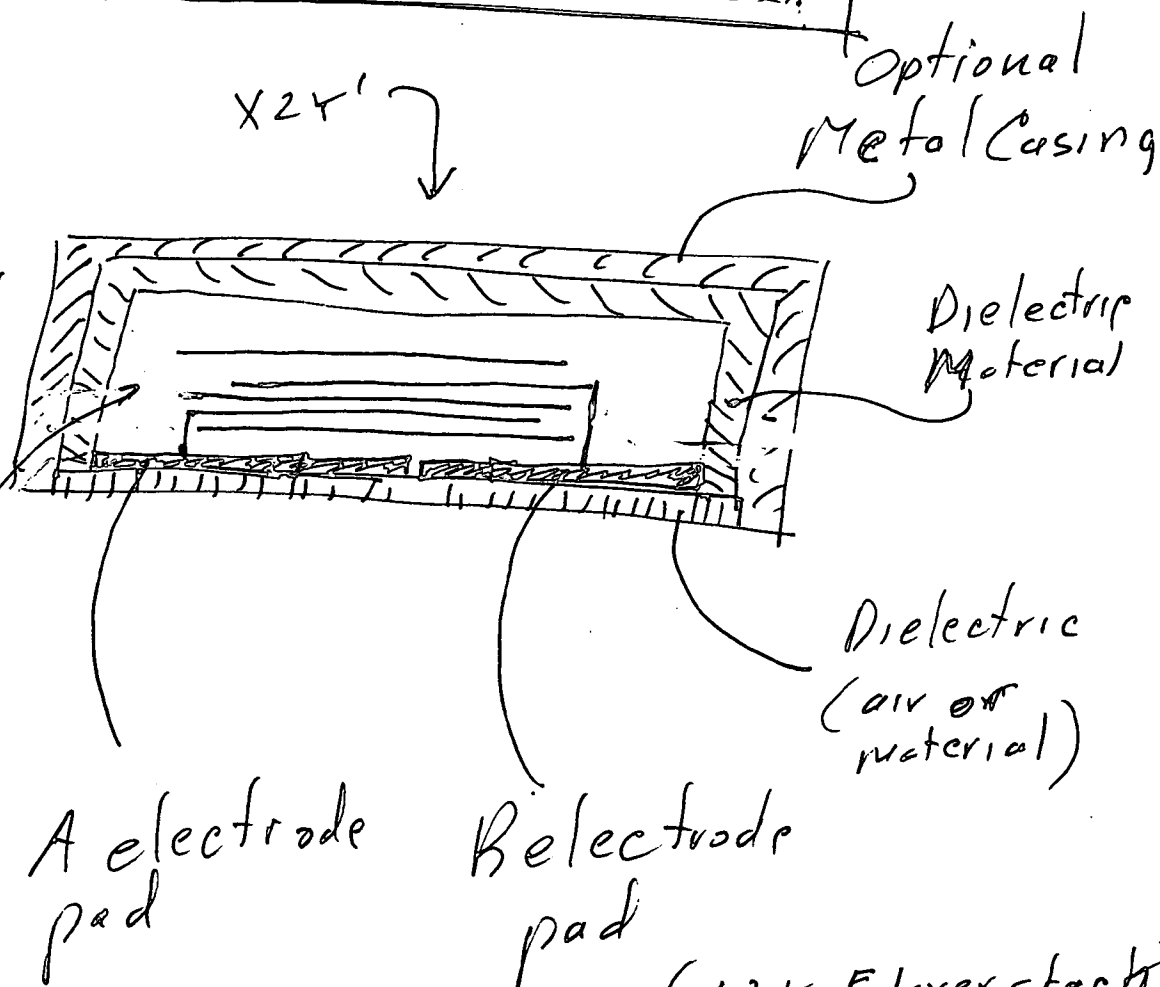 Optional
Metal Casing
X2Y'
Dielectric
Material
Dielectric
(air or
material)
A electrode
pad
B electrode
pad
5 layer stack